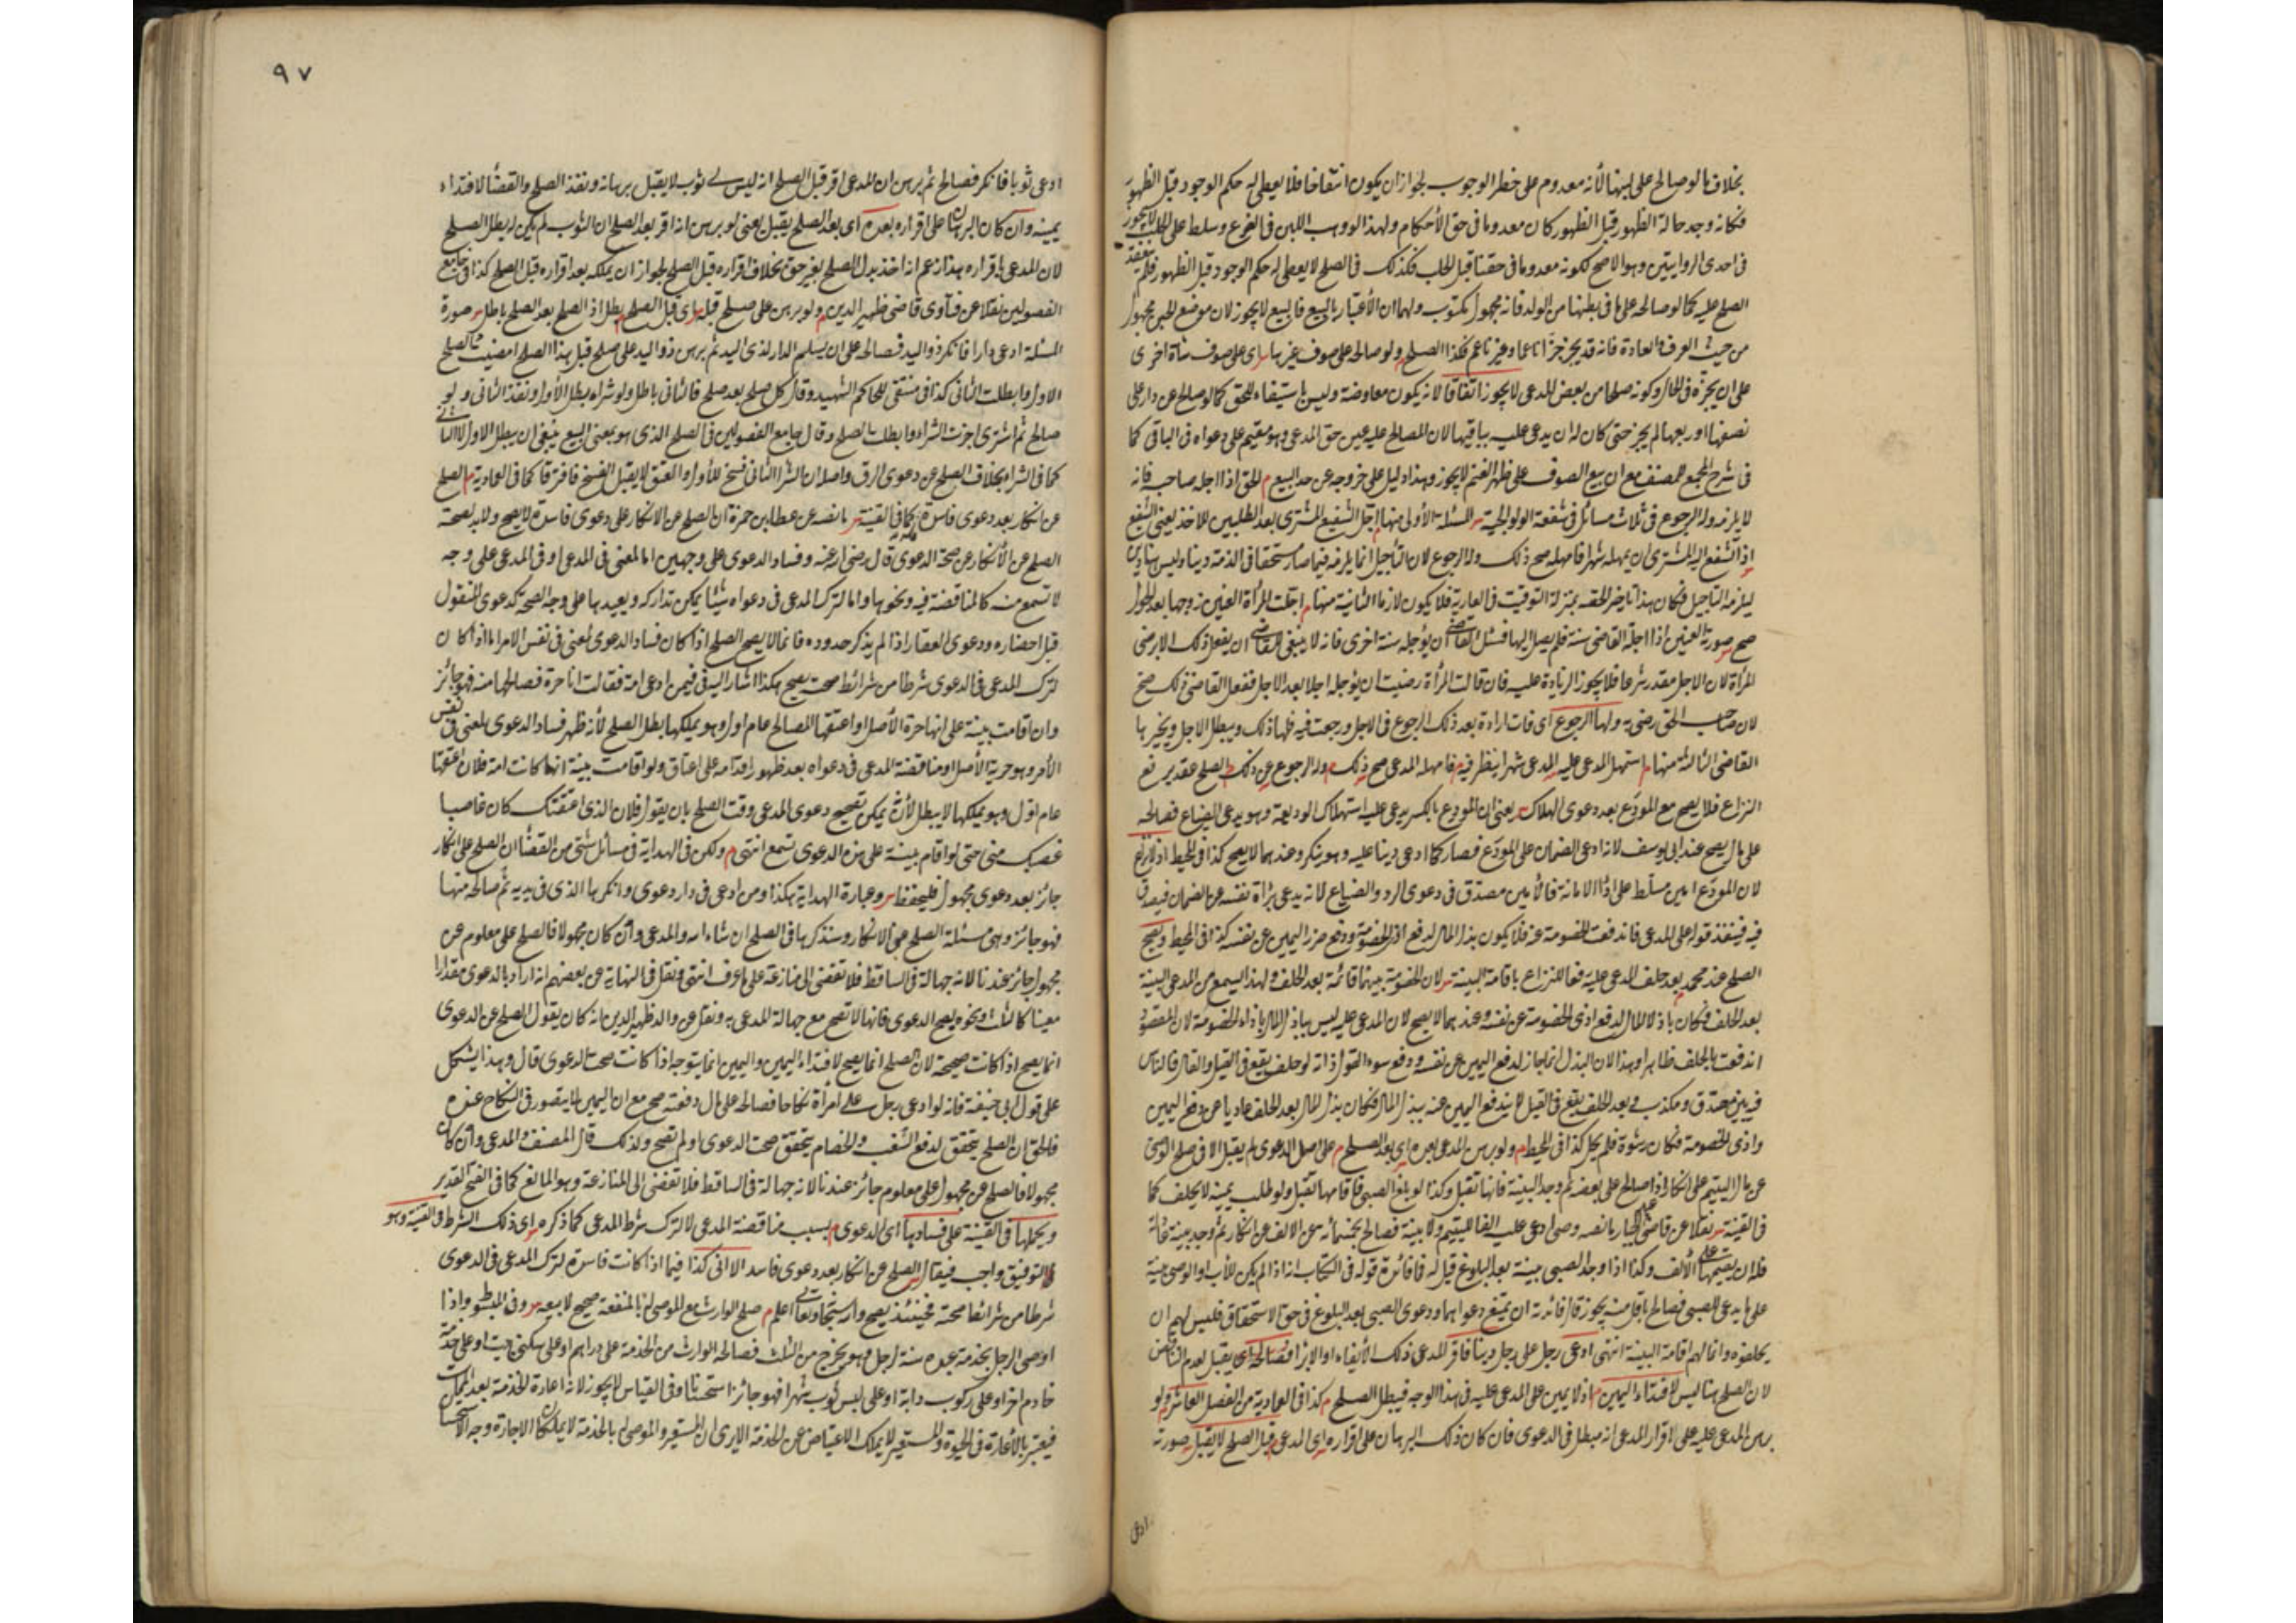 بخلاف ما لو صالح على لبنها لأنه معدوم على خطر الوجوب لجواز ان يكون انتفاخا فلا يعطى له حكم الوجود قبل الظهور
فكانه وجد حالة الظهور قبل الظهور كان معدوما فى حق الأحكام ولهذا لو وهب اللبن فى الضرع وسلط على الحلب لا يجوز
فى احدى الروايتين وهو الاصح لكونه معدوما فى حقنا قبل الحلب فكذلك فى الصلح لا يعطى له حكم الوجود قبل الظهور فلم ينعقد
الصلح عليه كما لو صالحه على ما فى بطنها من الولد فانه مجهول ولهما ان الأعتبار بالبيع فالبيع لا يجوز لان موضع الجز مجهول
من حيث العرف والعادة فانه قد يجز جزا ناعما وغير ناعم فكذا الصلح م ولو صالحه على صوف غيرها س اى على صوف شاة اخرى
على ان يجزه فى الحال وكونه صلحا من بعض المدعى لا يجوز اتفاقا لانه يكون معاوضة وليس باستيفاء للحق كما لو صالح عن دار على
نصفها او ربعها لم يجز حتى كان له ان يدعى عليه بباقيها لان المصالح عليه عين حق المدعى وهو مقيم على دعواه فى الباقى كما
فى شرح المجمع للمصنف مع ان بيع الصوف على ظهر الغنم لا يجوز وهذا دليل على خروجه عن حد البيع م الحق اذا اجله صاحبه فانه
لا يلزمه وله الرجوع فى ثلاث مسائل فى شفعة الولوالجية س المسئلة الأولى منها م اجل الشفيع المشترى بعد الطلبين للاخذ يعنى الشفيع
اذا الشفع اليه المشترى ان يمهله شهرا فامهله صح ذلك وله الرجوع لان التأجيل انما يلزمه فيما صار مستحقا فى الذمة دينا وليس هنا دين
ليلزمه التأجيل فكان هذا تأخير الحقه بمنزلة التوقيت فى العارية فلا يكون لازما الثانية منها م اجلت المرأة العنين زوجها بعد الحول
صح س صورته العنين اذا اجله القاضى سنة فلم يصل اليها فسئل القاضى ان يؤجله سنة اخرى فانه لا ينبغى للقاضى ان يفعل ذلك الا برضى
المرأة لان الاجل مقدر شرعا فلا يجوز الزيادة عليه فان قالت المرأة رضيت ان يؤجل اجلا بعد الاجل ففعل القاضى ذلك صح
لان صاحب الحق رضى به ولها الرجوع اى فان ارادة بعد ذلك الرجوع فى الاجل ورجعت فيه فلها ذلك ويبطل الاجل ويخيرها
القاضى الثالثة منها م استمهل المدعى عليه المدعى شهرا ينظر فيه م فامهله المدعى صح ذلك م وله الرجوع عن ذلك م الصلح عقد يرفع
النزاع فلا يصح مع المودع بعد دعوى الهلاك س يعنى ان المودع بالكسر يدعى عليه استهلاك الوديعة وهو يدعى الضياع فصالحه
على مال يصح عند ابى يوسف لانه ادعى الضمان على المودع فصار كما ادعى دينا عليه وهو ينكر وعندهما لا يصح كذا فى المحيط
لان المودع امين مسلط على اداء الامانة فالأمين مصدق فى دعوى الرد والضياع لانه يدعى براءة نفسه عن الضمان فيصدق
فيه فينفذ قوله على المدعى فاندفعت الخصومة عنه فلا يكون بذل المال لدفع اذى الخصومة ودفع ضرر اليمين عن نفسه كذا فى المحيط ويصح
الصلح عند محمد م بعد حلف المدعى عليه دفعا للنزاع باقامة البينة س لان الخصومة بينهما قائمة بعد الحلف ولهذا يسمع من المدعى البينة
بعد الحلف فكان باذلا المال لدفع اذى الخصومة عن نفسه وعندهما لا يصح لان المدعى عليه ليس بباذل المال بازاء الخصومة لان المقصود
اندفعت بالحلف ظاهرا وهذا لان البدل انما جاز لدفع اليمين عن نفسه ودفع سوء القول اذ انه لو حلف يقع فى القيل والقال فالناس
فريقين مصدق ومكذب وبعد الحلف يقع فى القيل لا يندفع اليمين عنه ببذل المال فكان بذل المال بعد الحلف عاريا عن دفع اليمين
واذى الخصومة فكان رشوة فلم يحل كذا فى المحيط م ولو برهن المدعى بعده اى بعد الصلح م على اصل الدعوى لم يقبل الا فى صلح الوصى
عن مال اليتيم على انكار اذا صالح على بعضه ثم وجد البينة فانها تقبل وكذا لو بلغ الصبى فاقامها تقبل ولو طلب يمينه لا يحلف كما
فى القنية س نقلا عن قاضى عبد الجبار ما نصه وصى ادعى عليه الفا لليتيم ولا بينة فصالح بخمسمائة عن الالف عن انكار ثم وجد بينة عادلة
فله ان يقيمها على الألف وكذا اذا وجد الصبى بينة بعد البلوغ قيل له فافائدة قوله فى الكتاب انه اذا لم يكن للأب او الوصى بينة
على ما يدعى للصبى فصالح باقل منه يجوز قال فائدته ان يمتنع دعواهما ودعوى الصبى بعد البلوغ فى حق الاستحقاق فليس لهم ان
يحلفوه وانما لهم اقامة البينة انتهى ادعى رجل على رجل دينا فاقر المدعى ذلك الأيفاء او الابراء فصالحه يقبل لعدم التناقض
لان الصلح هنا ليس لافتداء اليمين م اذ لا يمين على المدعى عليه فى هذا الوجه فيبطل الصلح م كذا فى العادية من الفصل العاشر م ولو
برهن المدعى عليه على اقرار المدعى انه مبطل فى الدعوى فان كان ذلك البرهان على اقراره اى المدعى م قبل الصلح لا يقبل س صورته
ادعى
٩٧
ادعى ثوبا فانكر فصالح ثم برهن ان المدعى اقر قبل الصلح انه ليس لى ثوب لا يقبل برهانه ونفذ الصلح والقضا لافتداء
يمينه وان كان البرهان على اقراره بعده اى بعد الصلح يقبل يعنى لو برهن انه اقر بعد الصلح ان الثوب لم يكن له بطل الصلح
لان المدعى باقراره هذا زعم انه اخذ بدل الصلح بغير حق بخلاف اقراره قبل الصلح لجواز ان يملكه بعد اقراره قبل الصلح كذا فى جامع
الفصولين نقلا عن فتاوى قاضى ظهير الدين م ولو برهن على صلح قبله س اى قبل الصلح م بطل اذ الصلح بعد الصلح باطل س صورة
المسئلة ادعى دارا فانكر ذو اليد فصالحه على ان يسلم الدار لذى اليد ثم برهن ذو اليد على صلح قبل هذا الصلح امضيت الصلح
الاول وابطلت الثانى كذا فى منتقى للحاكم الشهيد وقال كل صلح بعد صلح فالثانى باطل ولو شراه بطل الأول ونفذ الثانى ولو
صالح ثم اشترى اجزت الشراء وابطلت الصلح وقال جامع الفصولين فى الصلح الذى هو بمعنى البيع ينبغى ان يبطل الاول لا الثانى
كما فى الشراء بخلاف الصلح عن دعوى الرق واصله ان الشرا الثانى فسخ للأول والعتق لا يقبل الفسخ فافترقا كما فى العادية م الصلح
عن انكار بعد دعوى فاسدة كما فى القنية س ما نصه عن عطا بن حمزة ان الصلح عن الانكار على دعوى فاسدة لا يصح ولا بد لصحة
الصلح عن الأنكار من صحة الدعوى قال رضى الله عنه وفساد الدعوى على وجهين اما لمعنى فى المدعى او فى المدعى على وجه
لا تسمع منه كالمناقضة فيه ونحوها واما لترك المدعى فى دعواه شيئا يمكن تداركه ويعيدها على وجه الصحة كدعوى المنقول
قبل احضاره ودعوى العقار اذا لم يذكر حدوده فانما لا يصح الصلح اذا كان فساد الدعوى لمعنى فى نفس الامر اما اذا كان
لترك المدعى فى الدعوى شرطا من شرائط صحته يصح هكذا اشار اليه فى فيمن ادعى امة فقالت انا حرة فصالحها منه فهو جائز
وان اقامت بينة على انها حرة الأصل او اعتقها المصالح عام اول وهو يملكها بطل الصلح لأنه ظهر فساد الدعوى لمعنى فى نفس
الأمر وهو حرية الأصل او مناقضة المدعى فى دعواه بعد ظهور اقدامه على اعتاق ولو اقامت بينة انها كانت امة فلان اعتقها
عام اول وهو يملكها لا يبطل لأنه يمكن تصحيح دعوى المدعى وقت الصلح بان يقول فلان الذى اعتقتك كان غاصبا
غصبك منى حتى لو اقام بينة على هذه الدعوى تسمع انتهى م ولكن فى الهداية فى مسائل شتى من القضا ان الصلح على انكار
جائز بعد دعوى مجهول فليحفظ س وعبارة الهداية هكذا ومن ادعى فى دار دعوى وانكرها الذى فى يديه ثم صالحه منها
فهو جائز وهى مسئلة الصلح على الانكار وسنذكرها فى الصلح ان شاء الله والمدعى وان كان مجهولا فالصلح على معلوم عن
مجهول جائز عندنا لانه جهالة فى الساقط فلا تفضى الى منازعة على ما عرف انتهى ونقل فى النهاية عن بعضهم انه اراد بالدعوى مقدارا
معينا كالثلث ونحوه ويصح الدعوى فانها لا تصح مع جهالة المدعى به ونقل عن والد ظهير الدين انه كان يقول الصلح عن الدعوى
انما يصح اذا كانت صحيحة لان الصلح انما يصح لافتداء اليمين واليمين انما يتوجه اذا كانت صحت الدعوى قال وهذا يشكل
على قول ابى حنيفة فانه لو ادعى رجل على امرأة نكاحا فصالحه على مال دفعته صح مع ان اليمين لا يتصور فى النكاح عنده
فالحق ان الصلح يتحقق لدفع الشغب والخصام يتحقق صحت الدعوى او لم تصح ولذلك قال المصنف والمدعى وان كان
مجهولا فالصلح عن مجهول على معلوم جائز عندنا لانه جهالة فى الساقط فلا تفضى الى المنازعة وهو المانع كما فى الفتح القدير
ويحملها فى القنية على فسادها اى الدعوى م بسبب مناقضة المدعى لا لترك شرط المدعى كما ذكره س اى ذلك الشرط فى القنية وهو
التوفيق واجب فيقال س الصلح عن انكار بعد دعوى فاسد الا فى كذا فيما اذا كانت فاسدة لترك المدعى فى الدعوى
شرطا من شرائط صحته فحينئذ يصح والله سبحانه وتعالى اعلم م صلح الوارث مع الموصى له بالمنفعة صحيح لا بيعه س وفى المبسوط واذا
اوصى الرجل بخدمة عبده سنة لرجل وهو يخرج من الثلث فصالحه الوارث من الخدمة على دراهم او على سكنى بيت او على خدمة
خادم اخر او على ركوب دابة او على لبس ثوب شهرا فهو جائز استحسانا وفى القياس لا يجوز لانه اعادة الخدمة بعد الممات
فيعتبر بالأعارة فى الحيوة والمستعير لا يملك الاعتياض عن الخدمة الا يرى ان المستعير والموصى له بالخدمة لا يملكان الاجارة وجه الاستحسان